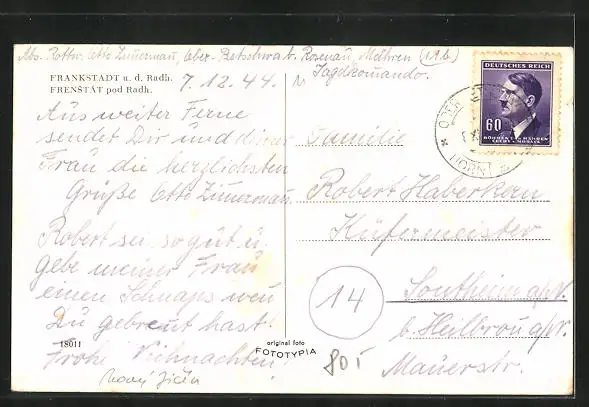 Abs. Rottw. Otto Zimermann, Ober-Betschwa b. Rosenau, Mähren
Jagdkomando.
FRANKSTADT u. d. Radh.
FRENŠTÁT pod Radh.
7.12.44.
Aus weiter Ferne
sendet Dir und deiner
Frau die herzlichsten
Grüße Otto Zimermann.
Robert sei so gut u.
gebe meiner Frau
einen Schnaps wen
Du gebrent hast!
Frohe Weihnachten!
18011
original foto
FOTOTYPIA
DEUTSCHES REICH
60
BÖHMEN U. MÄHREN
ČECHY A MORAVA
Familie
Robert Haberkern
Küfermeister
14
Sontheim a/N.
b. Heilbron a/N.
Mauerstr.